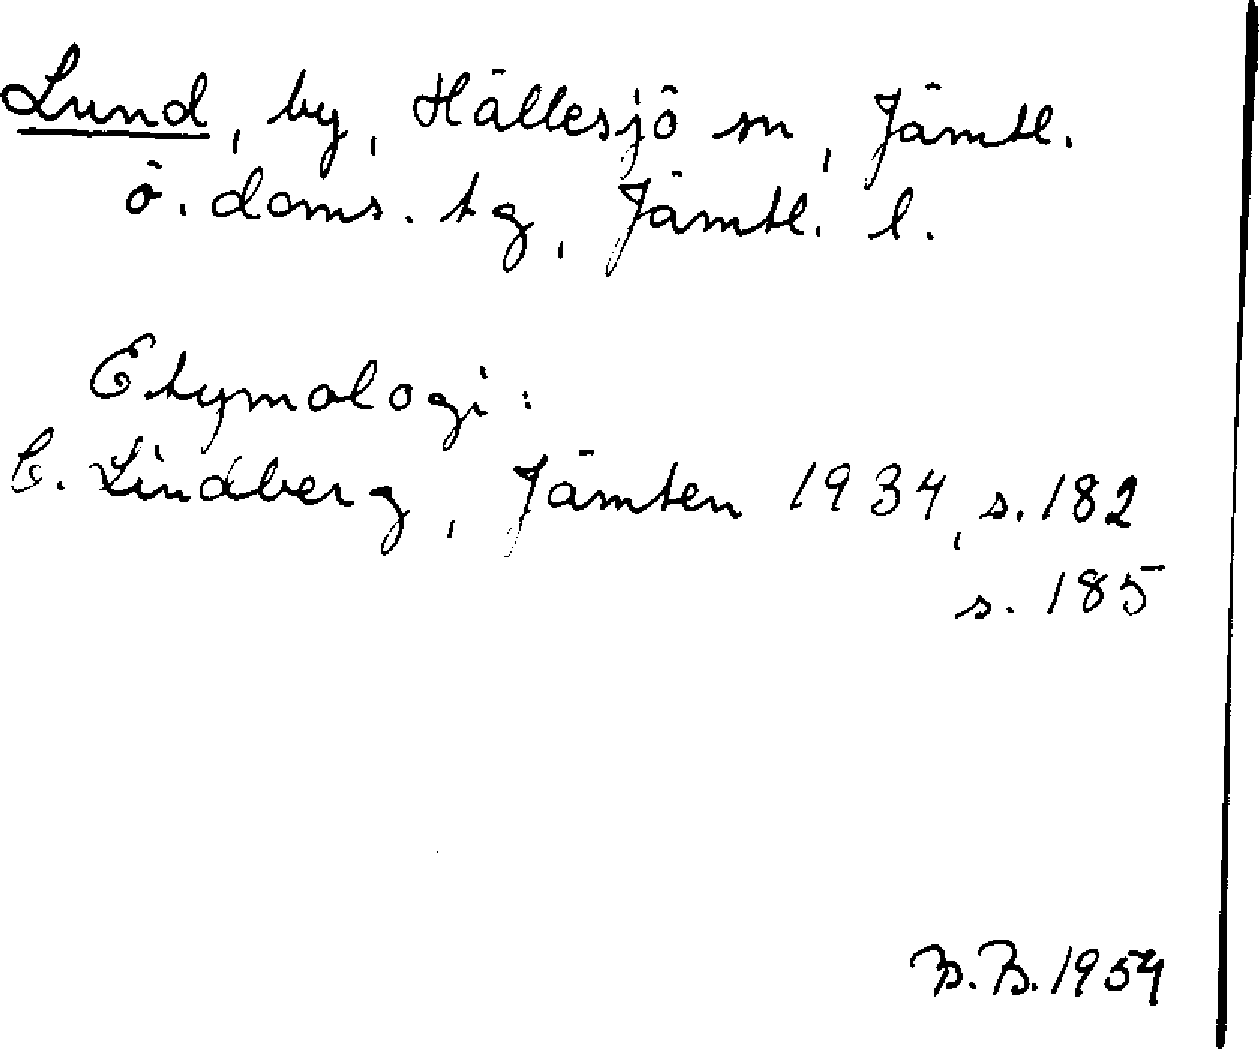 Lund, by, Hällesjö sn, Jämtl.
ö. doms. tg, Jämtl. l.
Etymologi:
C. Lindberg, Jämten 1934, s. 182
s. 185
B.B. 1954